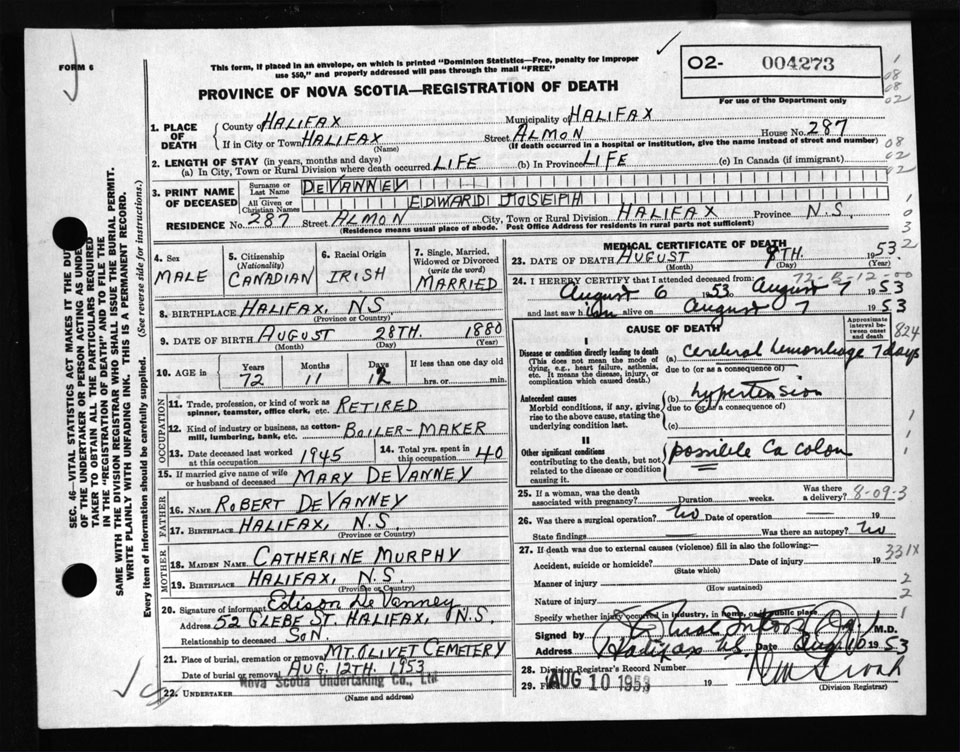 FORM 6
This form, if placed in an envelope, on which is printed "Dominion Statistics—Free, penalty for improper
use $50," and properly addressed will pass through the mail "FREE"
PROVINCE OF NOVA SCOTIA—REGISTRATION OF DEATH
O2- 004273
For use of the Department only
1. PLACE OF DEATH
County of HALIFAX Municipality of HALIFAX
If in City or Town HALIFAX Street ALMON House No. 287
(Name) (If death occurred in a hospital or institution, give the name instead of street and number)
2. LENGTH OF STAY (in years, months and days)
(a) In City, Town or Rural Division where death occurred LIFE (b) In Province LIFE (c) In Canada (if immigrant)
3. PRINT NAME OF DECEASED
Surname or Last Name DEVANNEY
All Given or Christian Names EDWARD JOSEPH
RESIDENCE No. 287 Street ALMON City, Town or Rural Division HALIFAX Province N.S.
(Residence means usual place of abode. Post Office Address for residents in rural parts not sufficient)
4. Sex MALE
5. Citizenship (Nationality) CANADIAN
6. Racial Origin IRISH
7. Single, Married, Widowed or Divorced (write the word) MARRIED
8. BIRTHPLACE HALIFAX, N.S.
(Province or Country)
9. DATE OF BIRTH AUGUST 28TH. 1880
(Month) (Day) (Year)
10. AGE in Years 72 Months 11 Days 12 If less than one day old hrs. or min.
OCCUPATION
11. Trade, profession, or kind of work as spinner, teamster, office clerk, etc. RETIRED
12. Kind of industry or business, as cotton-mill, lumbering, bank, etc. BOILER-MAKER
13. Date deceased last worked at this occupation 1945
14. Total yrs. spent in this occupation 40
15. If married give name of wife or husband of deceased MARY DEVANNEY
FATHER
16. NAME ROBERT DEVANNEY
17. BIRTHPLACE HALIFAX, N.S.
(Province or Country)
MOTHER
18. MAIDEN NAME CATHERINE MURPHY
19. BIRTHPLACE HALIFAX, N.S.
(Province or Country)
20. Signature of informant Edison De Vanney
Address 52 GLEBE ST. HALIFAX, N.S.
Relationship to deceased SON.
21. Place of burial, cremation or removal MT. OLIVET CEMETERY
Date of burial or removal AUG. 12TH. 1953
Nova Scotia Undertaking Co., Ltd
22. UNDERTAKER
(Name and address)
MEDICAL CERTIFICATE OF DEATH
23. DATE OF DEATH AUGUST 9TH. 1953
(Month) (Day) (Year)
24. I HEREBY CERTIFY that I attended deceased from:
August 6 1953 August 7 1953
and last saw him alive on August 7 1953
CAUSE OF DEATH
Approximate interval between onset and death
I
Disease or condition directly leading to death
(This does not mean the mode of dying, e.g., heart failure, asthenia, etc. It means the disease, injury, or complication which caused death.)
(a) cerebral hemorrhage 7 days
due to (or as a consequence of)
Antecedent causes
Morbid conditions, if any, giving rise to the above cause, stating the underlying condition last.
(b) hypertension
due to (or as a consequence of)
(c)
II
Other significant conditions
contributing to the death, but not related to the disease or condition causing it.
possible Ca colon
25. If a woman, was the death associated with pregnancy? Duration weeks. Was there a delivery? 8-09-3
26. Was there a surgical operation? No Date of operation 19
State findings Was there an autopsy? No
27. If death was due to external causes (violence) fill in also the following:—
Accident, suicide or homicide? Date of injury 19
(State which)
331X
Manner of injury
(How sustained)
Nature of injury
Specify whether injury occurred in industry, in home, or in public place
Signed by M.D.
Address Halifax N.S. Date Aug 10 1953
28. Division Registrar's Record Number
29. AUG 10 1953 19
(Division Registrar)
SEC. 46 VITAL STATISTICS ACT MAKES IT THE DUTY
OF THE UNDERTAKER OR PERSON ACTING AS UNDERTAKER
TO OBTAIN ALL THE PARTICULARS REQUIRED
IN THE "REGISTRATION OF DEATH" AND TO FILE THE
SAME WITH THE DIVISION REGISTRAR WHO SHALL ISSUE THE BURIAL PERMIT.
WRITE PLAINLY WITH UNFADING INK. THIS IS A PERMANENT RECORD.
Every item of information should be carefully supplied. (See reverse side for instructions.)